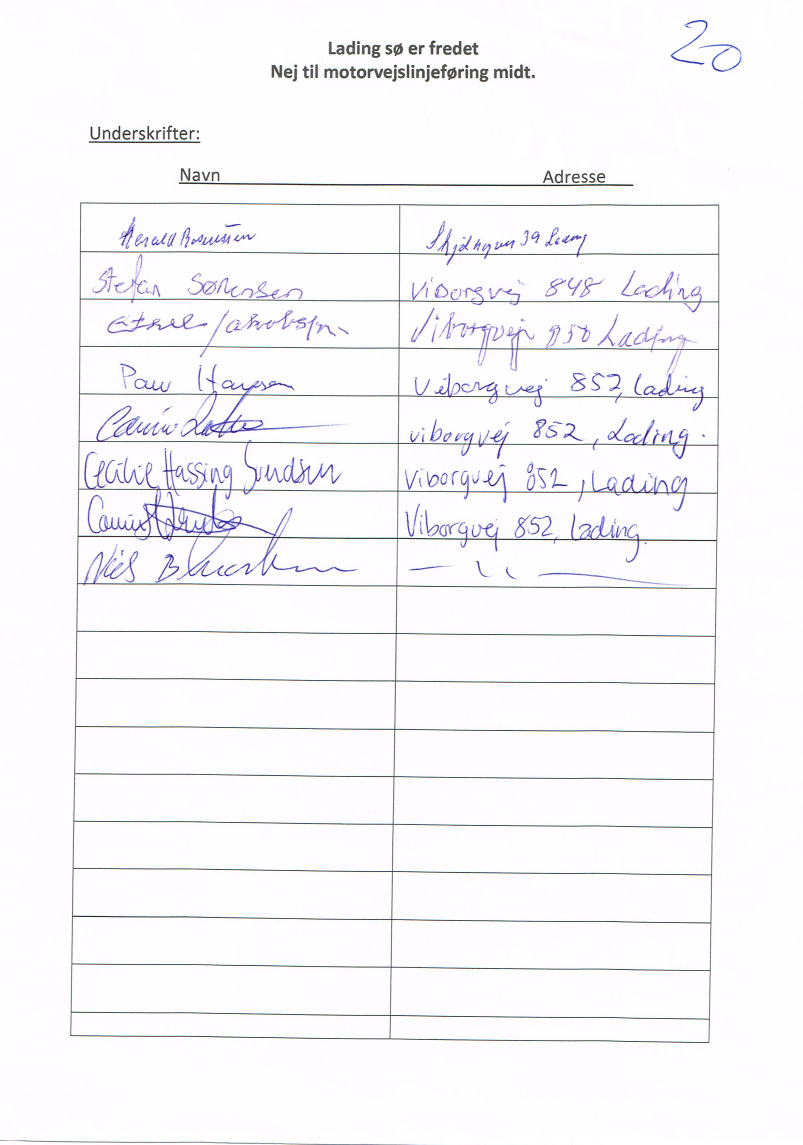 20
Lading sø er fredet
Nej til motorvejslinjeføring midt.
Underskrifter:
Navn Adresse
Harald Rasmussen 39 Lading
Stefan Sørensen Viborgvej 848 Lading
Jakobsen Viborgvej 850 Lading
Hansen Viborgvej 852, Lading
viborgvej 852, Lading.
Cecilie Hassing Svendsen Viborgvej 852, Lading
Viborgvej 852, Lading.
Niels B — ıı —